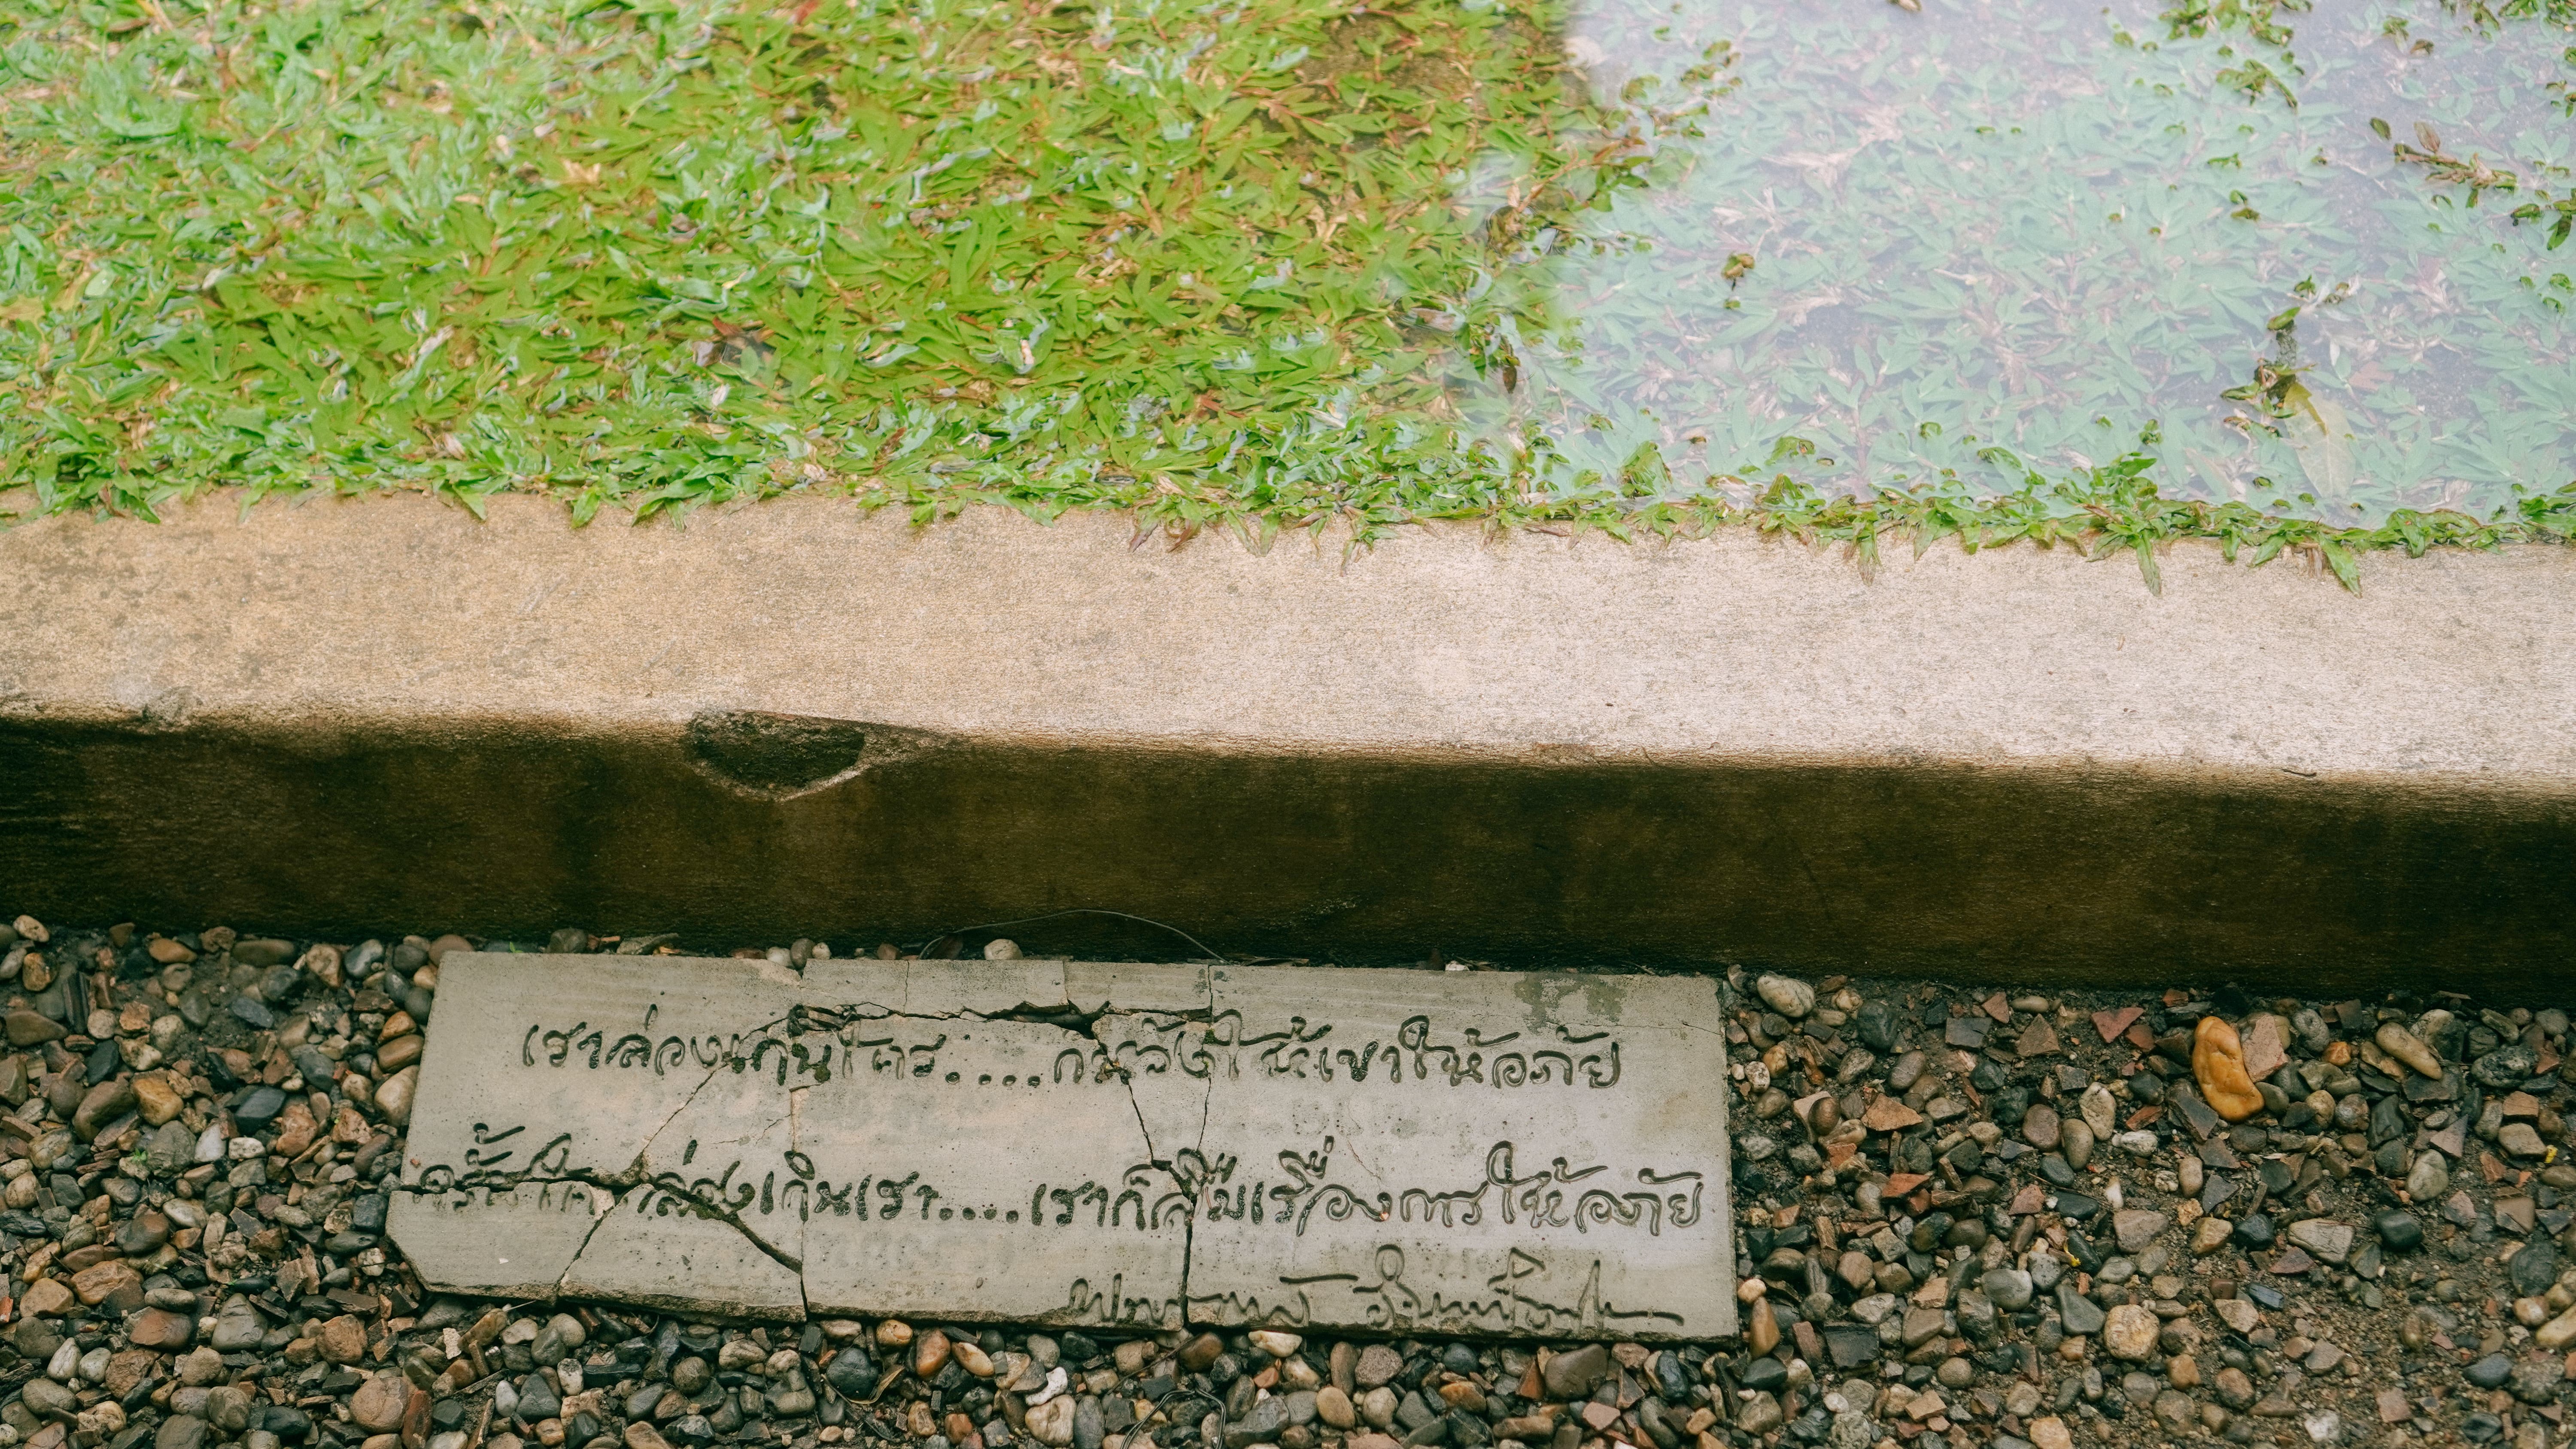 เราล่วงเกินใคร.....ก็หวังให้เขาให้อภัย
ครั้นใครล่วงเกินเรา....เราก็ลืมเรื่องการให้อภัย